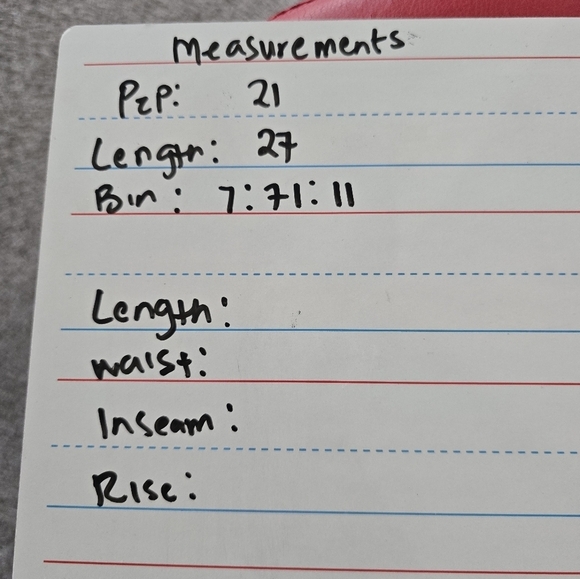 Measurements
P2P: 21
Length: 27
Bin: 7:71:11
Length:
Waist:
Inseam:
Rise: